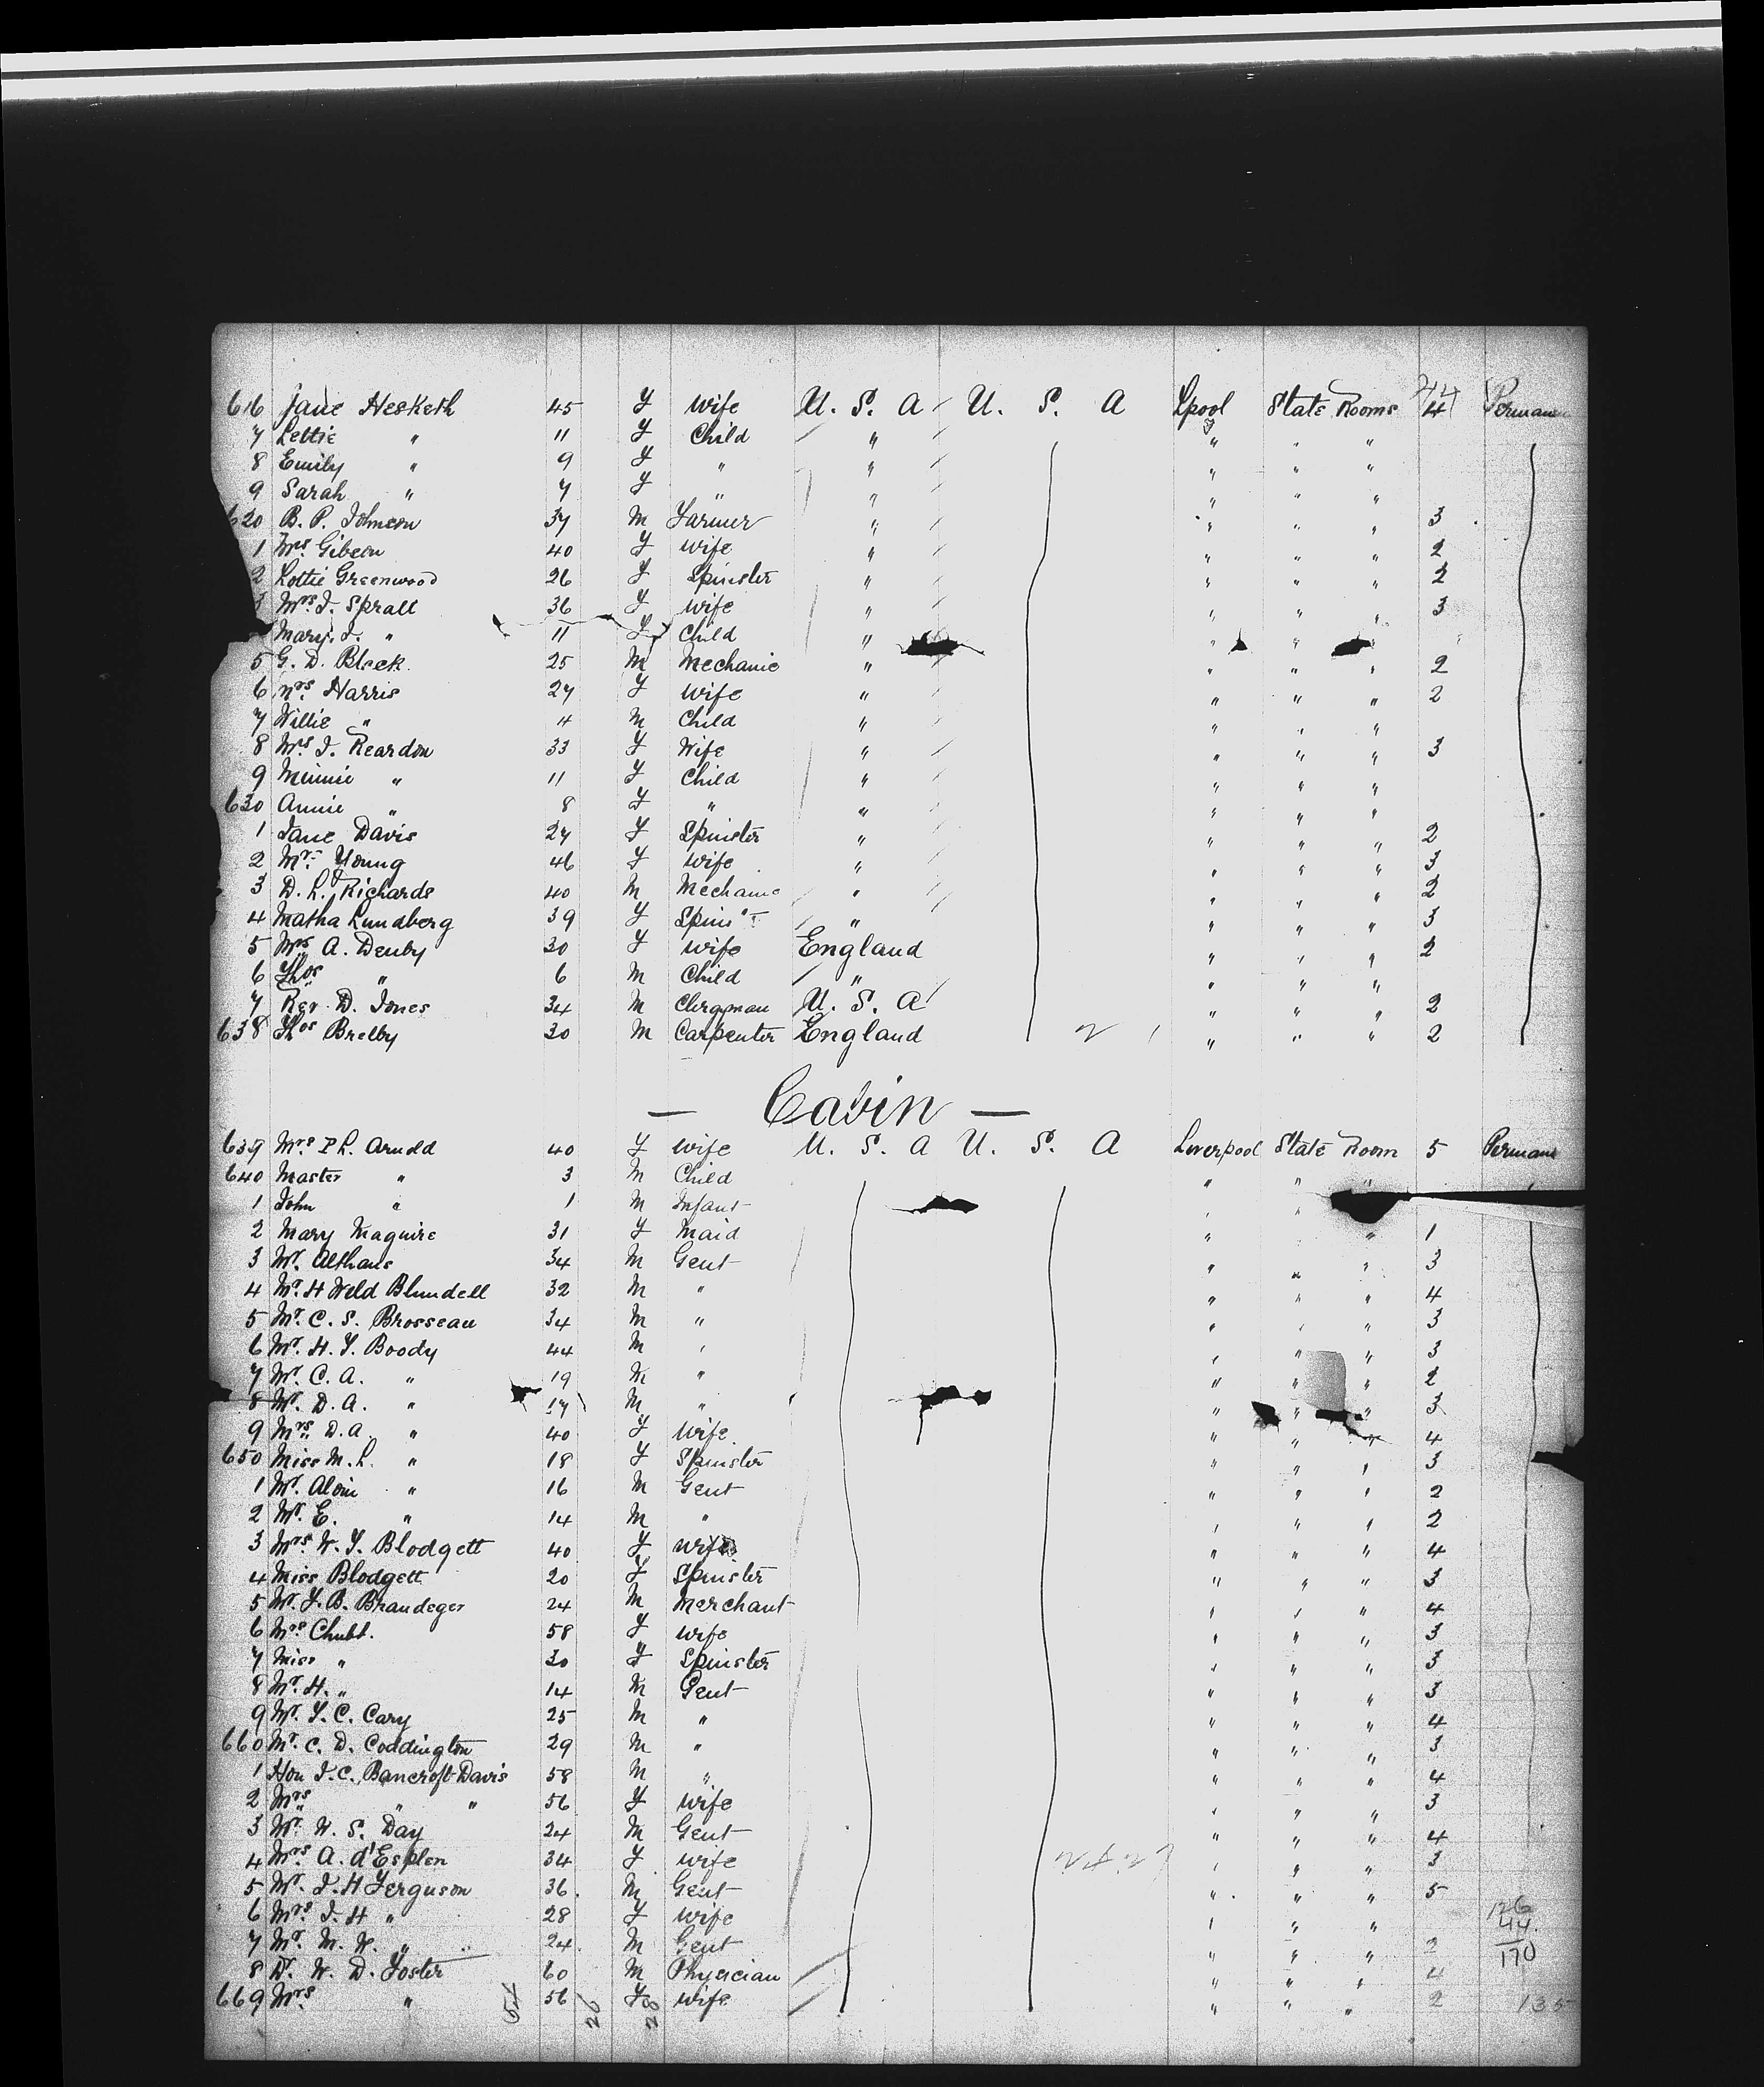 616 Jane Hesketh 45 F wife U. S. A U. S. A Lpool State Rooms 4 Perman
7 Lettie " 11 F Child " " " "
8 Emily " 9 F " " " " "
9 Sarah " 7 F " " " " "
620 B. P. Johnson 37 M Farmer " " " " 3
1 Mrs Gibson 40 F wife " " " " 2
2 Lottie Greenwood 26 F Spinster " " " " 2
3 Mrs J. Spratt 36 F wife " " " " 3
Mary J. " 11 F Child " " "
5 G. D. Black 25 M Mechanic " " " " 2
6 Mrs Harris 27 F wife " " " " 2
7 Willie " 4 M Child " " " "
8 Mrs J. Reardon 33 F Wife " " " " 3
9 Minnie " 11 F Child " " " "
630 Annie " 8 F " " " " "
1 Jane Davis 27 F Spinster " " " " 2
2 Mrs Young 46 F wife " " " " 3
3 D. L. Richards 40 M Mechanic " " " " 2
4 Matha Lundberg 39 F Spins " " " " 3
5 Mrs A. Denby 30 F wife England " " " 2
6 Thos " 6 M Child " " " "
7 Rev. D. Jones 34 M Clergman U. S. A " " " 2
638 Thos Brelby 30 M Carpenter England " " " 2
— Cabin —
639 Mrs P L. Arnold 40 F wife U. S. A U. S. A Liverpool State Room 5 Perman
640 Master " 3 M Child " " "
1 John " 1 M Infant " "
2 Mary Maguire 31 F Maid " " 1
3 Mr. Althaus 34 M Gent " " " 3
4 Mr. H Weld Blundell 32 M " " " " 4
5 Mr. C. S. Brosseau 34 M " " " " 3
6 Mr. H. F. Boody 44 M " " " " 3
7 Mr. C. A. " 19 M " " " " 2
8 Mr. D. A. " 17 M " " " " 3
9 Mrs. D. A. " 40 F wife " " " 4
650 Miss M. L. " 18 F Spinster " " " 3
1 Mr. Alvin " 16 M Gent " " " 2
2 Mr. E. " 14 M " " " " 2
3 Mrs. W. F. Blodgett 40 F wife " " " 4
4 Miss Blodgett 20 F Spinster " " " 3
5 Mr. F. B. Brandeger 24 M Merchant " " " 4
6 Mrs Chubb. 58 F wife " " " 3
7 Miss " 30 F Spinster " " " 3
8 Mr. H. " 14 M Gent " " " 3
9 Mr. F. C. Cary 25 M " " " " 4
660 Mr. C. D. Coddington 29 M " " " " 3
1 Hon J. C. Bancroft Davis 58 M " " " " 4
2 Mrs " " 56 F wife " " " 3
3 Mr. W. S. Day 24 M Gent " " " 4
4 Mrs. A. d'Esplen 34 F wife " " " 3
5 Mr. J. H Ferguson 36 M Gent " " " 5
6 Mrs. J. H " 28 F wife " " "
7 Mr. M. W. " 24 M Gent " " " 2
8 Dr. W. D. Foster 60 M Physician " " " 4
669 Mrs. " 56 F wife " " " 2
126
44
170
135
64 26 28